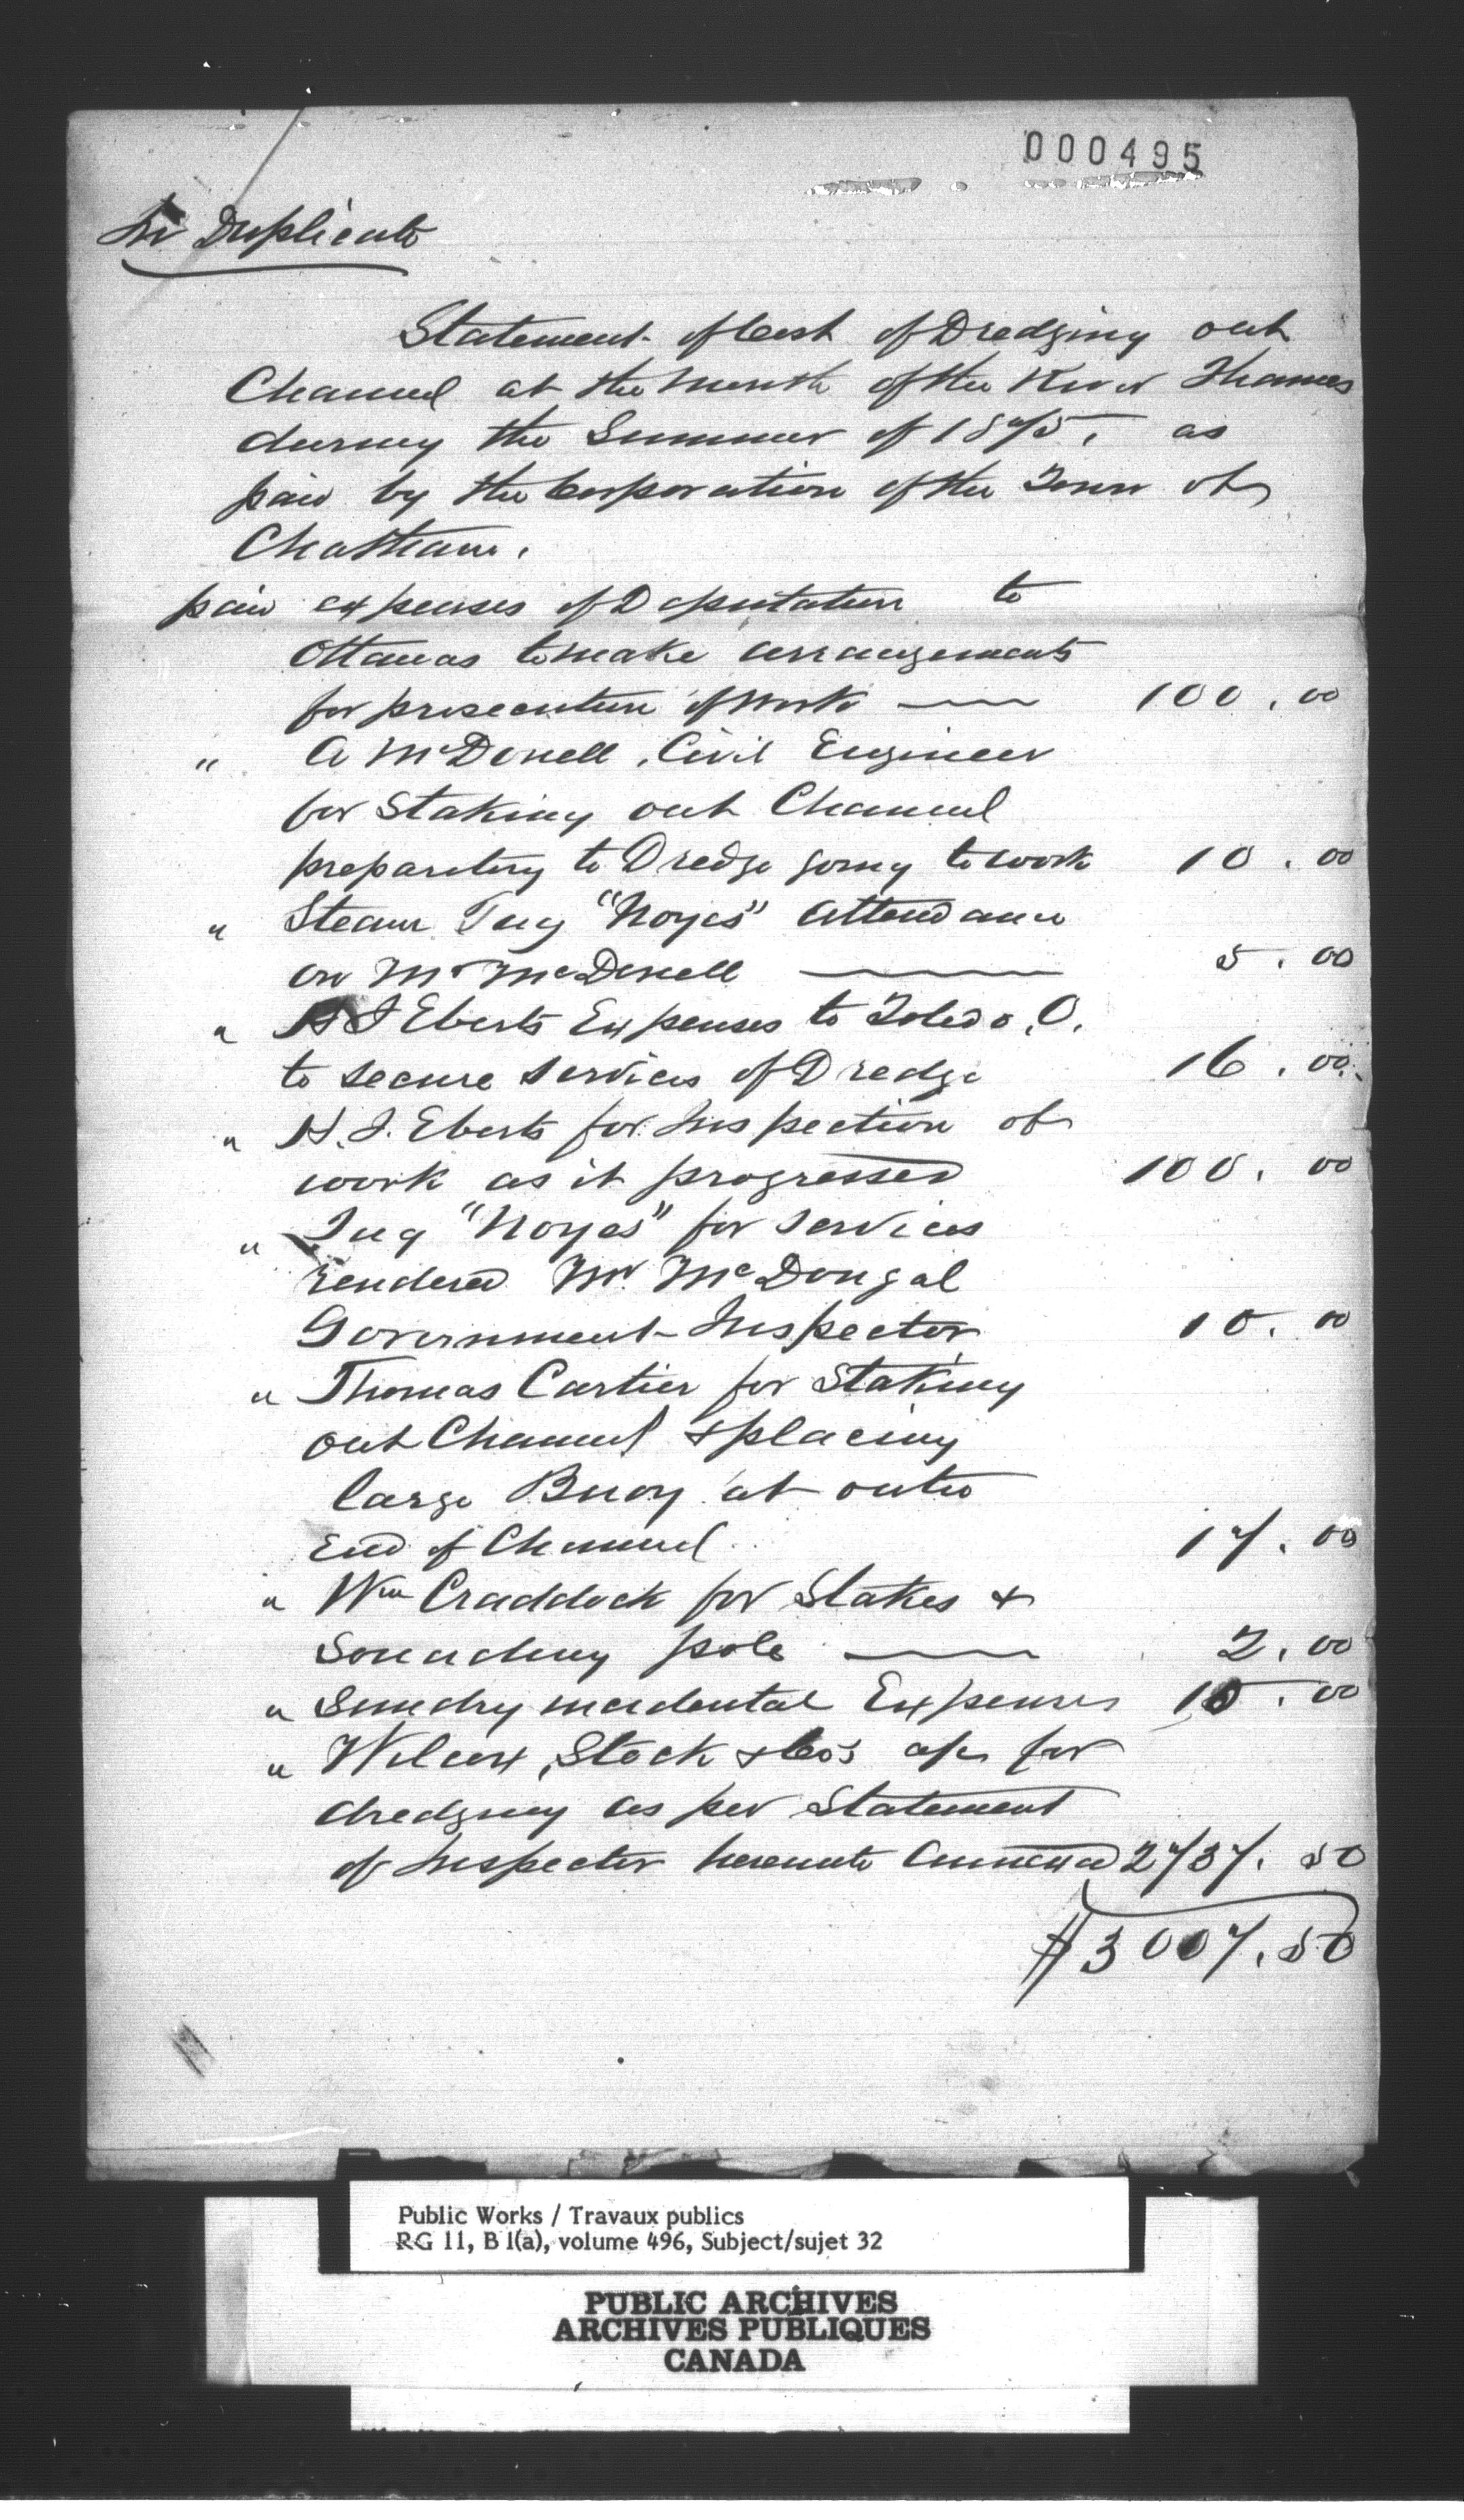 000495
In Duplicate
Statement of Cost of Dredging out
Channel at the Mouth of the River Thames
during the Summer of 1875, as
paid by the Corporation of the Town of
Chatham.
paid expenses of Deputation to
Ottawa to make arrangements
for prosecution of work — 100.00
" A McDonell, Civil Engineer
for Staking out Channel
preparitory to Dredge going to work 10.00
" Steam Tug "Noyes" attendance
on Mr McDonell — 5.00
" H J Eberts Expenses to Toledo, O.
to secure services of Dredge 16.00
" H. J. Eberts for Inspection of
work as it progressed 100.00
" Tug "Noyes" for services
rendered Mr McDougal
Government Inspector 10.00
" Thomas Cartier for Staking
out Channel & placing
large Buoy at outer
End of Channel 17.00
" Wm Craddock for Stakes &
Sounding pole — 2.00
" Sundry incidental Expenses 10.00
" Wilcox, Stock & Co's a/c for
dredging as per Statement
of Inspector hereunto annexed 2737.50
$3007.50
Public Works / Travaux publics
RG 11, B 1(a), volume 496, Subject/sujet 32
PUBLIC ARCHIVES
ARCHIVES PUBLIQUES
CANADA